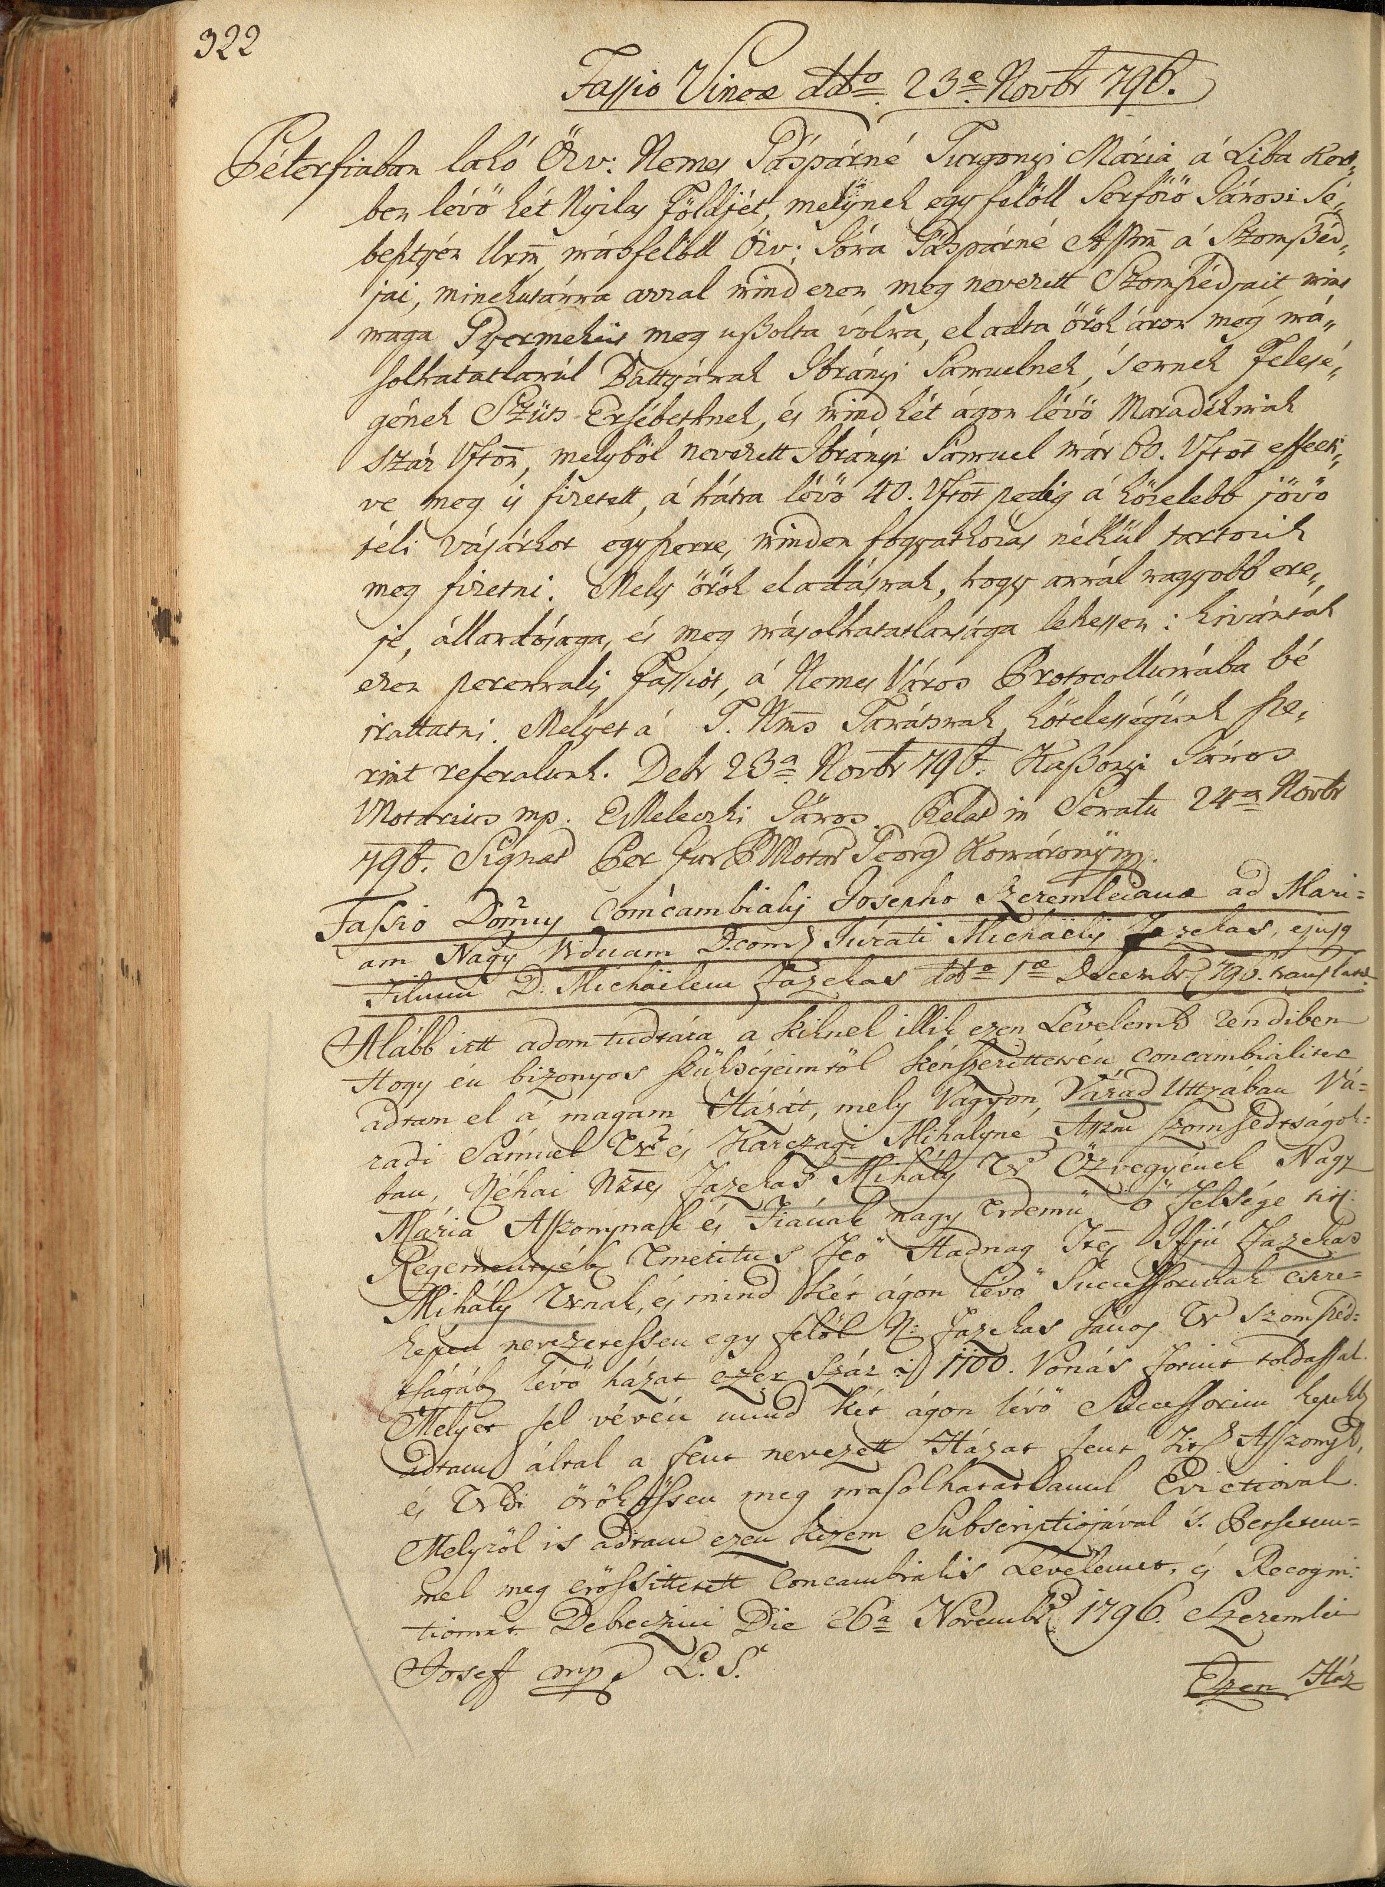 322
Fassio Vineae ddto 23e Novbr 796.
Péterfiaban lakó Özv: Nemes Gáspárné Turgonyi Mária á Liba Kert„
ben lévö két Nyilas Földjét, melynek egyfelöll Serföző Jánosi Se„
bestyén Urm̄ másfelöll Özv: Jóna Gáspárné Aszm̄ á Szomßéd„
jai, minekutánna arral mind ezen meg nevezett Szomßédjait, mint
maga Gyermekeit meg ußolta vólna, el adta örök áron meg má„
solhatatlanúl Battyának Ibrányi Sámuelnek, s ennek Felesé„
gének Szüts Ersébethnek, és mind két ágon lévö Maradékinak
száz Vfton, melyböl nevezett Ibrányi Sámuel már 60. Vftot effecti„
ve meg is fizetett, á hátra lévö 40. Vftot pedig á közelebb jövö
téli Vásárkor egyßerre, minden fogyatkozás nélkül tartozik
meg fizetni. Mely örök eladásnak, hogy annál nagyobb ere„
je, állandósága, és meg másolhatatlansága lehessen: kivánták
ezen perennalis Fassiót, á Nemes Város Protocollumába bé
irattatni. Melyet á T. Nms Tanátsnak, kötelességünk ße„
rint referalunk. Debr 23a Novbr 796. Kaßonyi János
Notarius mp. Meleczki János. Relat in Senatu 24a Novbr
796. Signat Per Jur V Notar Georg Komáromy mp.
Fassio Domus Concambialis Josepho Szeremleiana ad Mari=
am Nagy Viduam D. com Jurati Michaelis Fazekas, ejusq
Filium D. Michäelem Fazekas ddto 1ae Decembr 796. translata.
Alább irtt adom tudtára a kiknek illik ezen Levelemb rendiben
Hogy én bizonyos szükségeimtöl kénßerittetvén, concambialiter
adtam el a magam Házát, mely vagyon, Várad Uttzában Vá=
radi Sámuel Ur és Karczagi Mihályné Aszm szomßédtságok=
ban, Néhai Nztes Fazekas Mihály Ur Özvegyének Nagy
Mária Aszonynak és Fiának nagy Érdemü ö Felsége
Regementyéb Emeritus Feö Hadnag Ifjú Fazekas
Mihály Urnak, és mind két ágon lévö Successorinak csere=
képen nevezetessen egy felöl N: Fazekas János Ur szomßéd=
tságáb lévö házat ezer száz i 1100. Vonás forint toldással.
Melyet fel vévén mind két ágon lévö Successorim
adtam által a fent nevezett Házat fent Aszonyk,
és Urk örökössen meg masolhatatlanul Evictioval.
Melyröl is adtam ezen kezem Subscriptiojával s. Petsetem=
mel meg erössittetett Concambialis Levelemet, és Recogni=
tiomat. Debreczini Die 26a Novembr 1796. Szeremlei
Josef mp L. S.
Ezen Ház